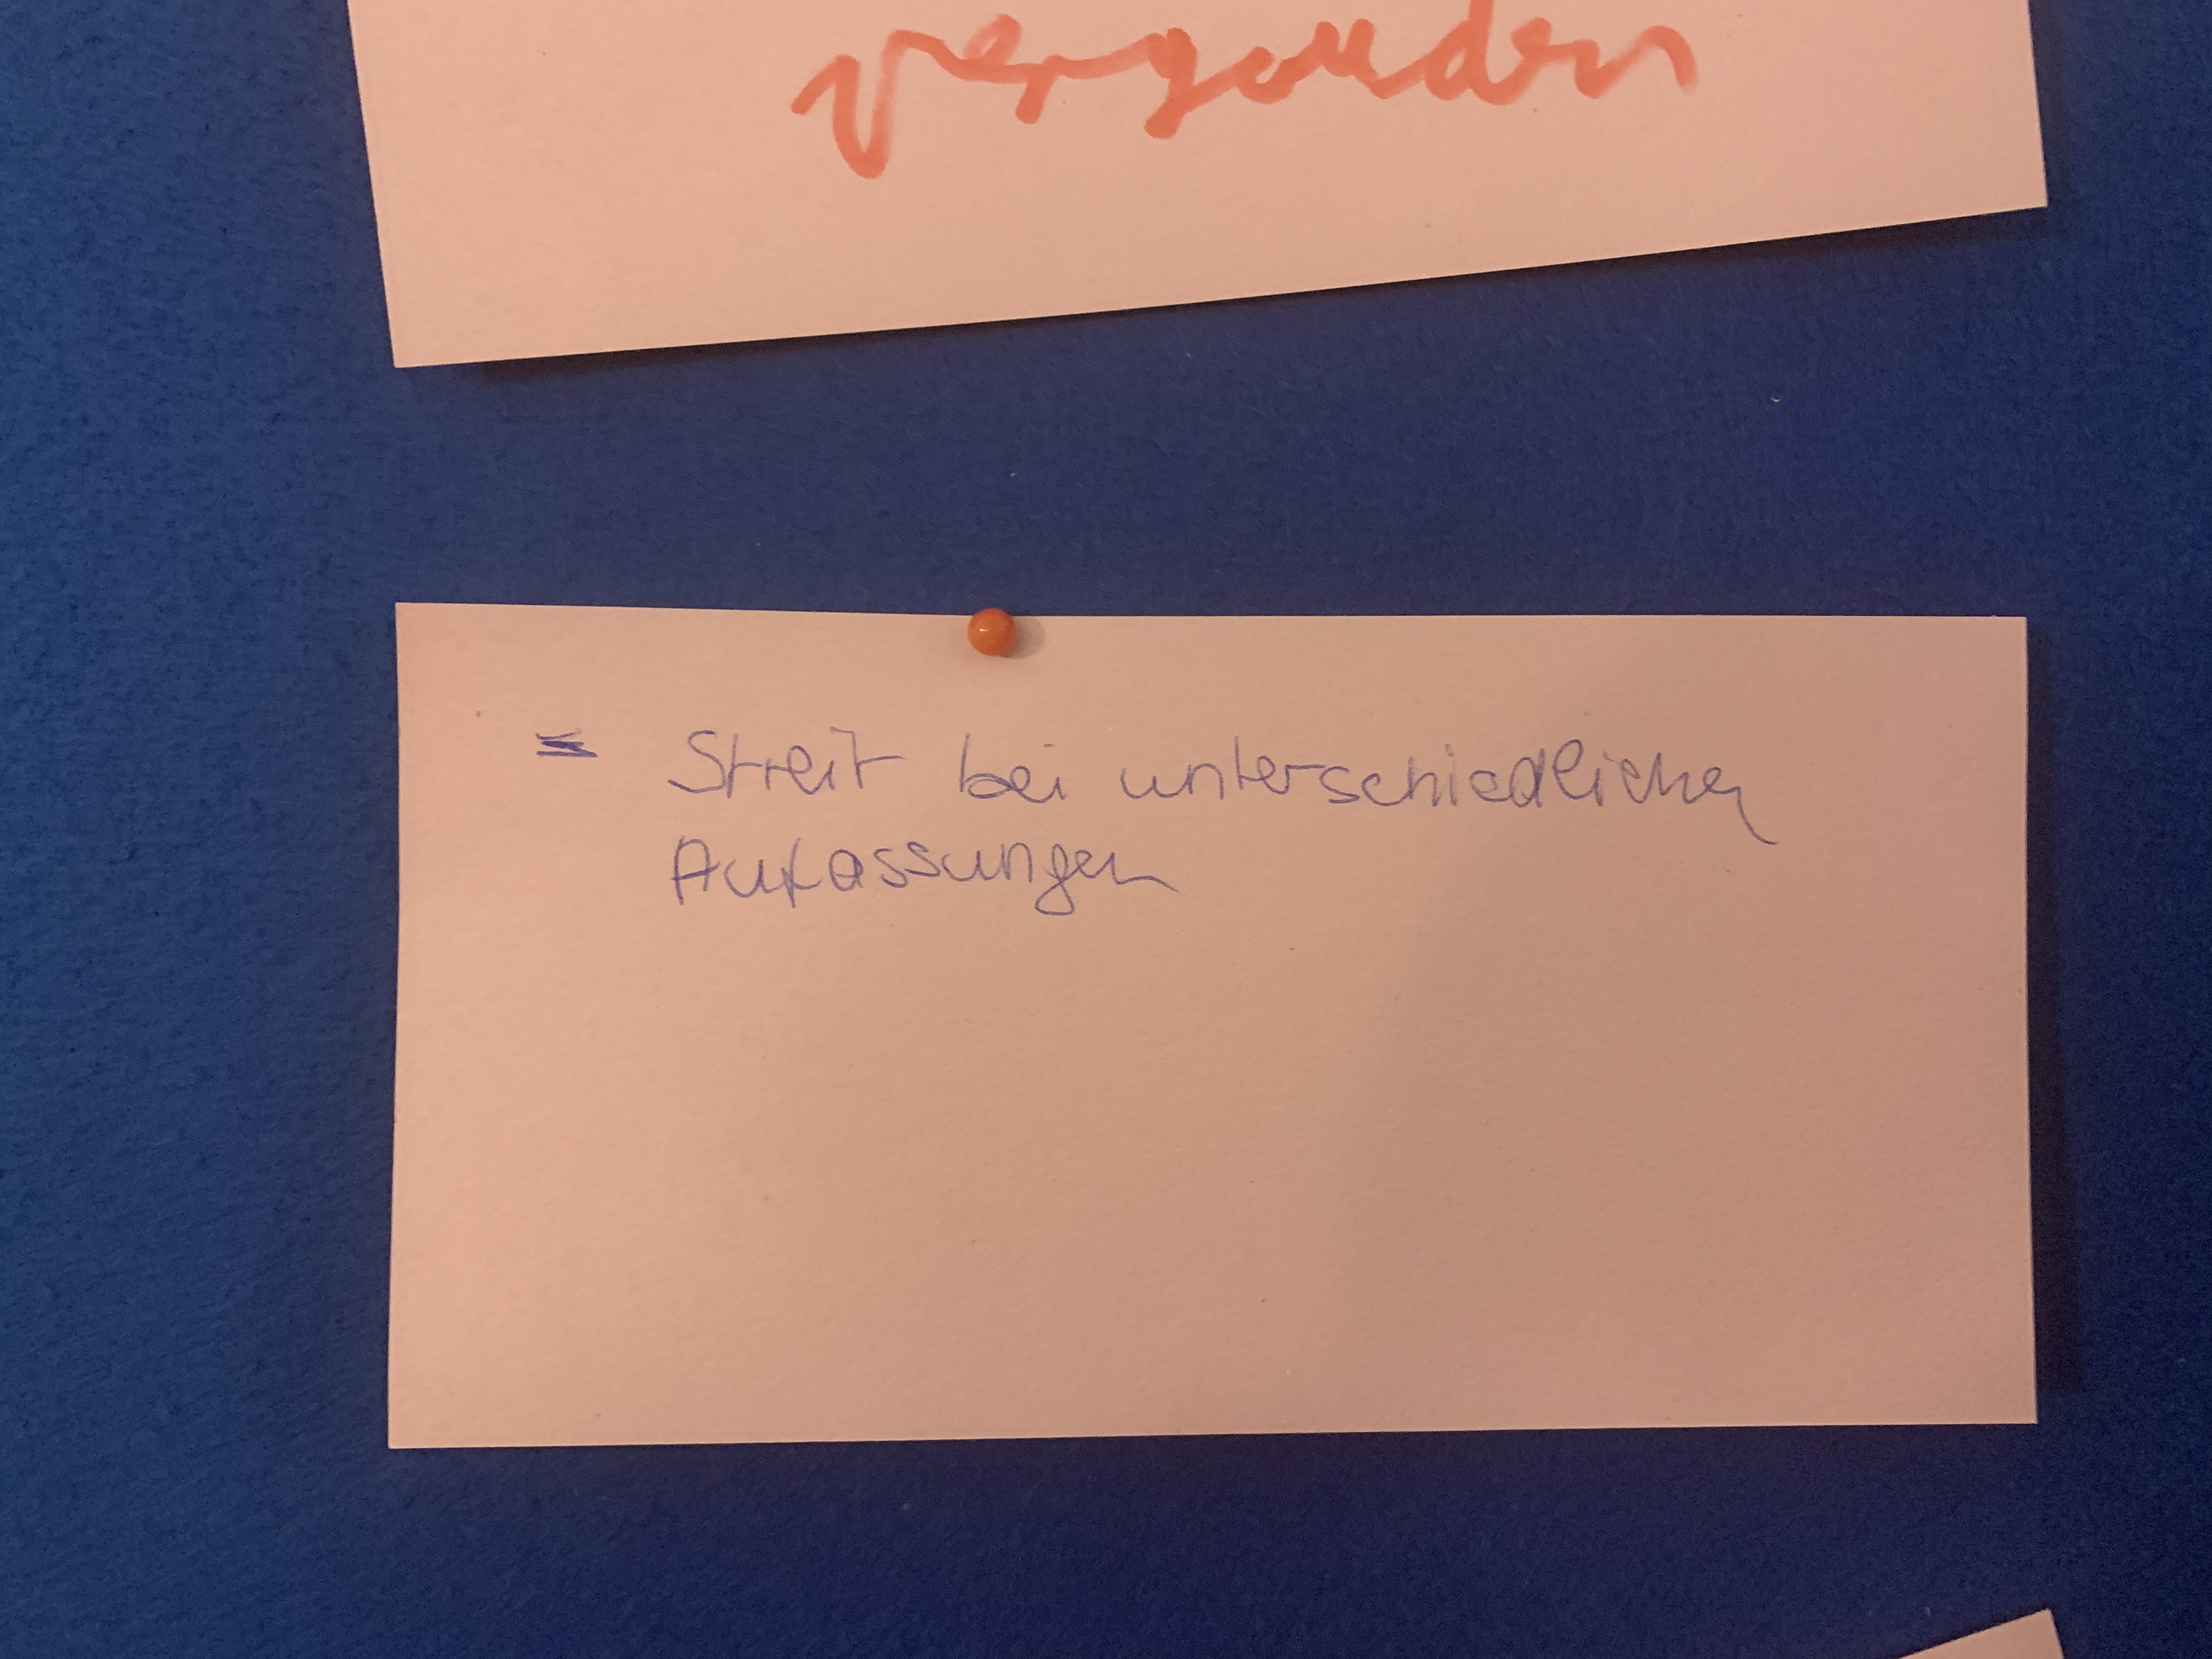 vergeuden
= Streit bei unterschiedlichen
Aufassungen